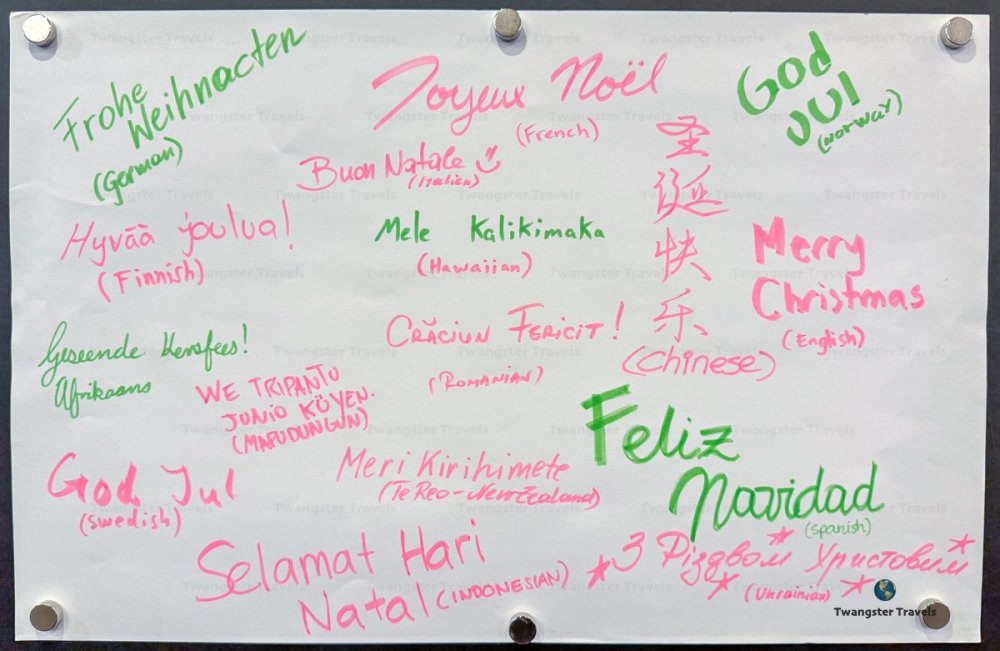 Frohe
Weihnacten
(German)
Joyeux Noël
(French)
God
JUl
(Norway)
Buon Natale
(Italien)
圣
诞
快
乐
(Chinese)
Hyvää joulua!
(Finnish)
Mele Kalikimaka
(Hawaiian)
Merry
Christmas
(English)
Geseende Kersfees!
Afrikaans
CRĂCIUN FERICIT!
(ROMANIAN)
WE TRIPANTU
JUNIO KÜYEN.
(MAPUDUNGUN)
Feliz
Navidad
(Spanish)
God Jul
(Swedish)
Meri Kirihimete
(Te Reo-New Zealand)
Selamat Hari
Natal (INDONESIAN)
З Різдвом Христовим
(Ukrainian)
Twangster Travels